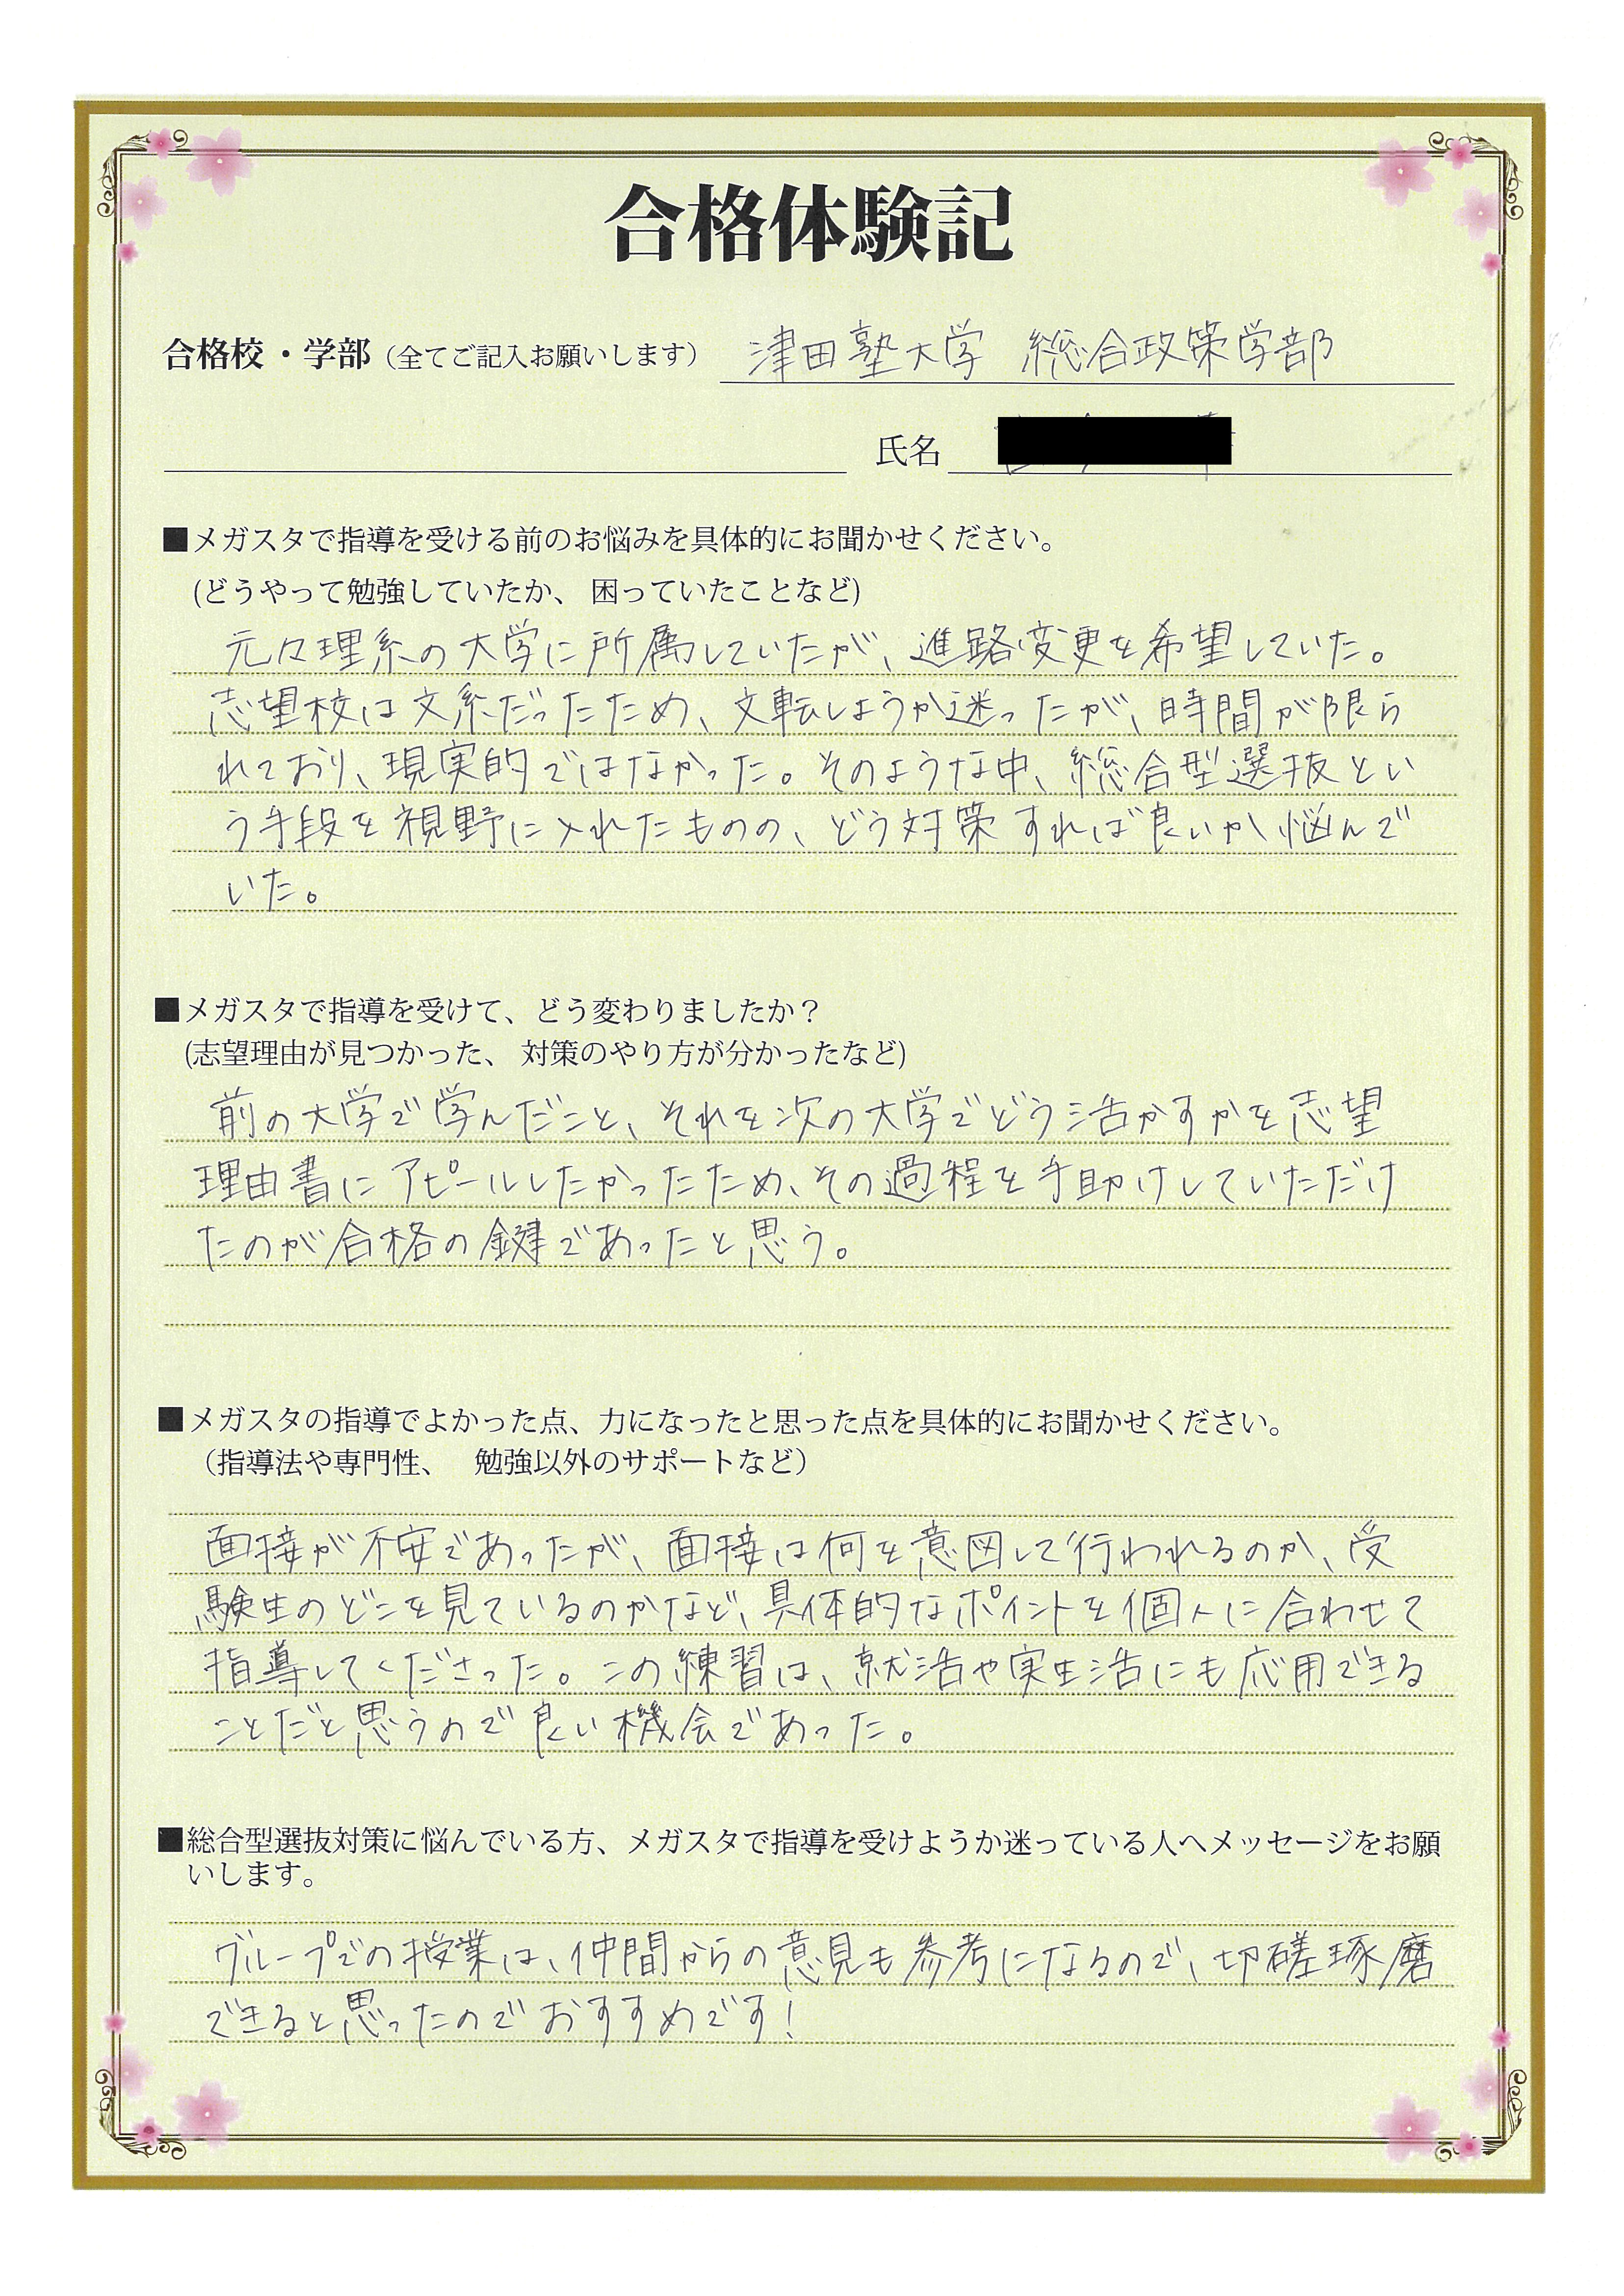 合格体験記
合格校・学部（全てご記入お願いします） 津田塾大学 総合政策学部
氏名
■メガスタで指導を受ける前のお悩みを具体的にお聞かせください。
(どうやって勉強していたか、 困っていたことなど)
元々理系の大学に所属していたが、進路変更を希望していた。
志望校は文系だったため、文転しようか迷ったが、時間が限ら
れており、現実的ではなかった。そのような中、総合型選抜とい
う手段を視野に入れたものの、どう対策すれば良いか悩んで
いた。
■メガスタで指導を受けて、どう変わりましたか？
(志望理由が見つかった、 対策のやり方が分かったなど)
前の大学で学んだこと、それを次の大学でどう活かすかを志望
理由書にアピールしたかったため、その過程を手助けしていただけ
たのが合格の鍵であったと思う。
■メガスタの指導でよかった点、力になったと思った点を具体的にお聞かせください。
（指導法や専門性、 勉強以外のサポートなど）
面接が不安であったが、面接は何を意図して行われるのか、受
験生のどこを見ているのかなど、具体的なポイントを個人に合わせて
指導してくださった。この練習は、就活や実生活にも応用できる
ことだと思うので良い機会であった。
■総合型選抜対策に悩んでいる方、メガスタで指導を受けようか迷っている人へメッセージをお願
いします。
グループでの授業は、仲間からの意見も参考になるので、切磋琢磨
できると思ったのでおすすめです!